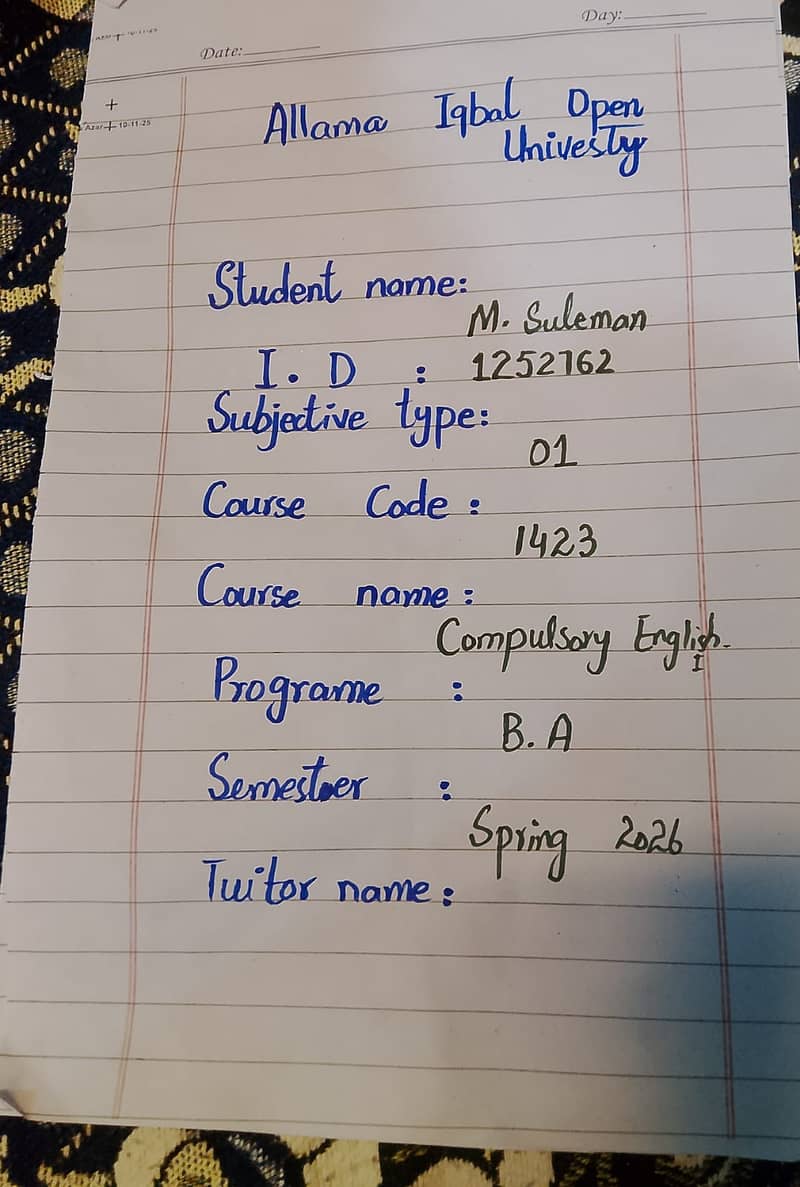 Day:
Date:
Azar 10-11-25
Allama Iqbal Open
Univesty
Student name:
M. Suleman
I. D : 1252762
Subjective type:
01
Course Code :
1423
Course name :
Compulsory English-I
Programe :
B. A
Semester :
Spring 2026
Twitor name :